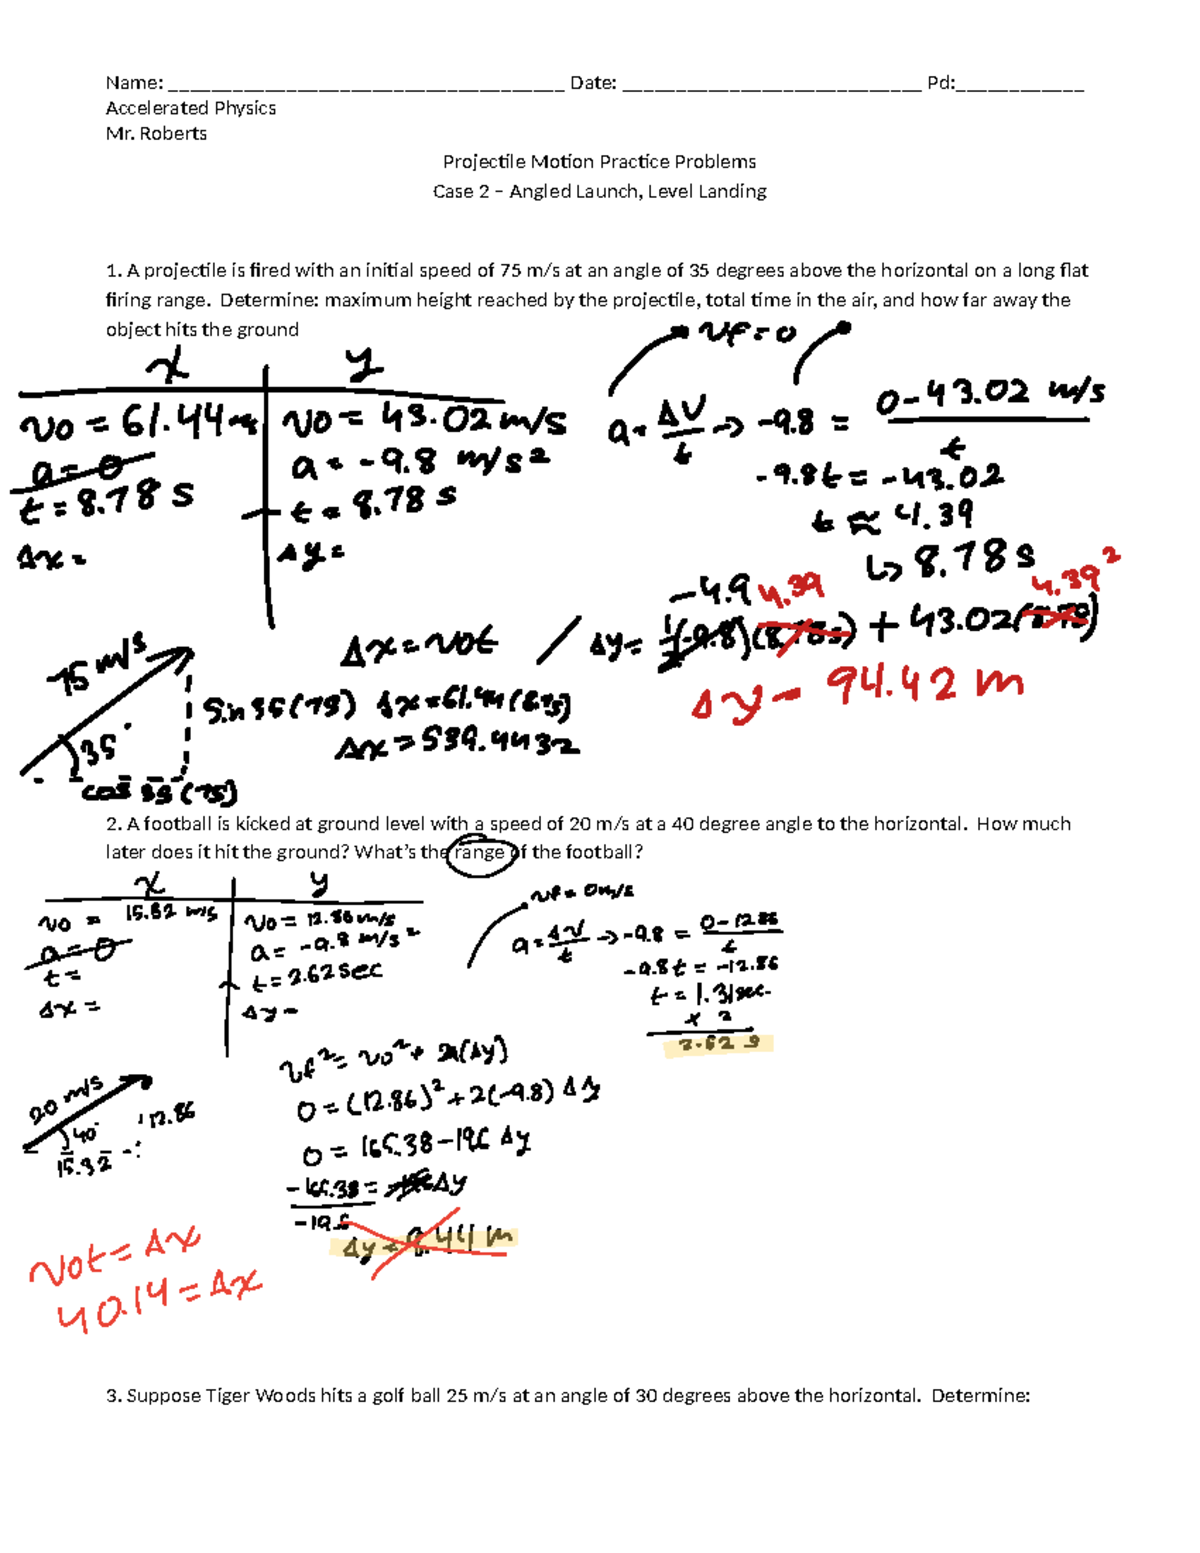 Name: ______________________________________ Date: _____________________________ Pd:____________
Accelerated Physics
Mr. Roberts
Projectile Motion Practice Problems
Case 2 – Angled Launch, Level Landing
1. A projectile is fired with an initial speed of 75 m/s at an angle of 35 degrees above the horizontal on a long flat
firing range.  Determine: maximum height reached by the projectile, total time in the air, and how far away the
object hits the ground
vf=0
x y
vo = 61.44 m vo = 43.02 m/s
a = 0 a = -9.8 m/s²
t = 8.78 s t = 8.78 s
Δx = Δy =
a = ΔV/t → -9.8 = 0-43.02 m/s / t
-9.8t = -43.02
t ≈ 4.39
↳ 8.78 s
-4.9 4.39 4.39²
Δy = 1/2(-9.8)(8.78s) + 43.02(8.78)
Δy = 94.42 m
75 m/s
35°
Sin 35 (75)
cos 35 (75)
Δx = vot
Δx = 539.4432
2. A football is kicked at ground level with a speed of 20 m/s at a 40 degree angle to the horizontal.  How much
later does it hit the ground? What's the range of the football?
x y
vo = 15.32 m/s vo = 12.86 m/s
a = 0 a = -9.8 m/s²
t = t = 2.62 sec
Δx = Δy =
vf = 0 m/s
a = ΔV/t → -9.8 = 0-12.86 / t
-9.8t = -12.86
t = 1.31 sec.
x 2
2.62 s
20 m/s
40°
12.86
15.32
vf² = vo² + 2a(Δy)
0 = (12.86)² + 2(-9.8) Δy
0 = 165.38 - 19.6 Δy
-165.38 = Δy
-19.6
Δy = 8.44 m
vot = Δx
40.14 = Δx
3. Suppose Tiger Woods hits a golf ball 25 m/s at an angle of 30 degrees above the horizontal.  Determine: